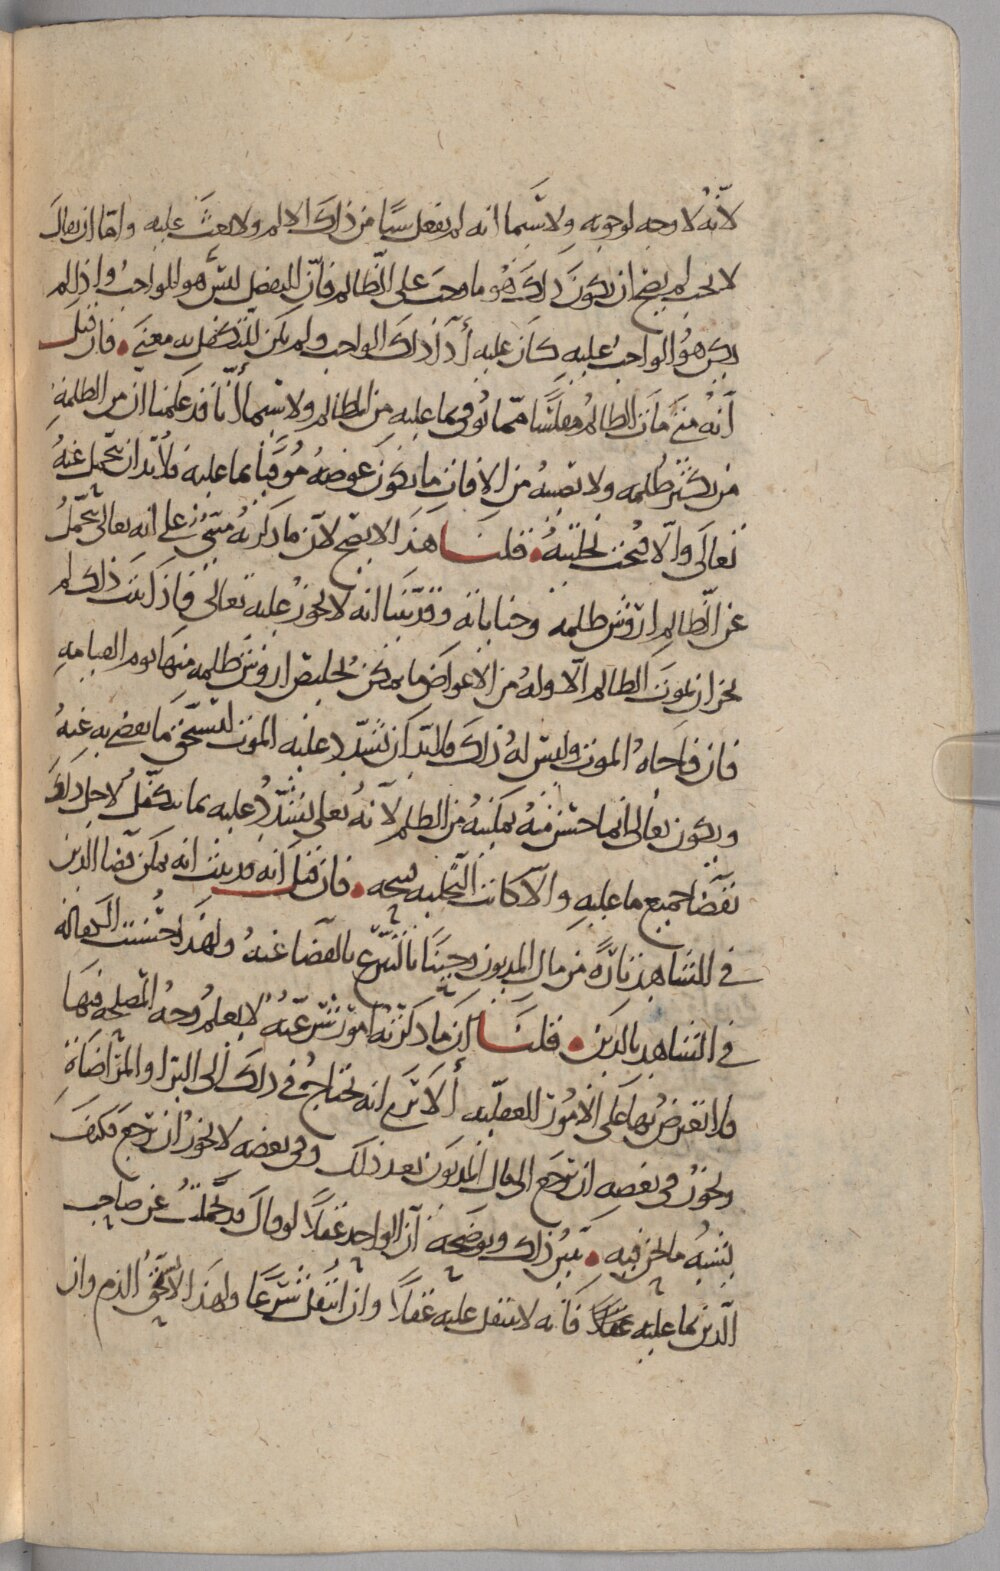 لانه لا وجه لوجوبه ولا سيما انه لم يفعل سببا من ذلك الالم ولا بعث عليه واما ان يقال
لا يجب لم يصح ان يكون ذلك هو ما وجب على الظالم فان التفضل ليس هو الواجب واذا لم
يكن هو الواجب عليه كان عليه أدآ ذلك الواجب ولم يكن للتكفل به معنى فان قيل
أنه متى مات الظالم مفلسا مما يوفي بما عليه من المظالم ولا سيما أنا قد علمنا ان من الظلمة
من يكثر ظلمه ولا تصيبه من الافات ما يكون عوضه موفيا بما عليه فلا بد ان يتحمل عنه
تعالى والا قبحت تخليته قلنا هذا لا يصح لان ما ذكرته مبني على انه تعالى يتحمل
عن الظالم اروش ظلمه وجناياته وقد بينا انه لا يجوز عليه تعالى فاذا كان كذلك لم
يجز ان يموت الظالم الا وله من الاعواض ما يمكن تخليص اروش ظلمه منها يوم القيامه
فان فاجاه الموت وليس له ذلك فلا بد ان يشدد عليه الموت ليستحق ما يقضي به عنه
ويكون تعالى انما حسن منه تمكينه من الظلم لانه تعالى يشدد عليه بما يتكفل لاجل ذلك
بقضا جميع ما عليه والا كانت التخليه قبيحه فان قيل انه قد يثبت انه يمكن قضا الدين
في الشاهد تارة من مال المديون وحينا بالتبرع بالقضا عنه ولهذا حسنت الكفاله
في الشاهد بالدين قلنا ان ما ذكرته امور شرعيه لا يعلم وجه المصلحه فيها
فلا تعترض بها على الامور العقليه ألا ترى انه يحتاج في ذلك الى البرا والمراضاة
ويجوز في بعضه ان يرجع الى مال المديون بعد ذلك وفي بعضه لا يجوز ان يرجع فكيف
يشبه ما نحن فيه يبين ذلك ويوضحه أن الواحد عقلا لو قال قد تحملت عن صاحب
الدين بما عليه عقلا فانه لا ينتقل عليه عقلا وان انتقل شرعا ولهذا لا يستحق الذم وان